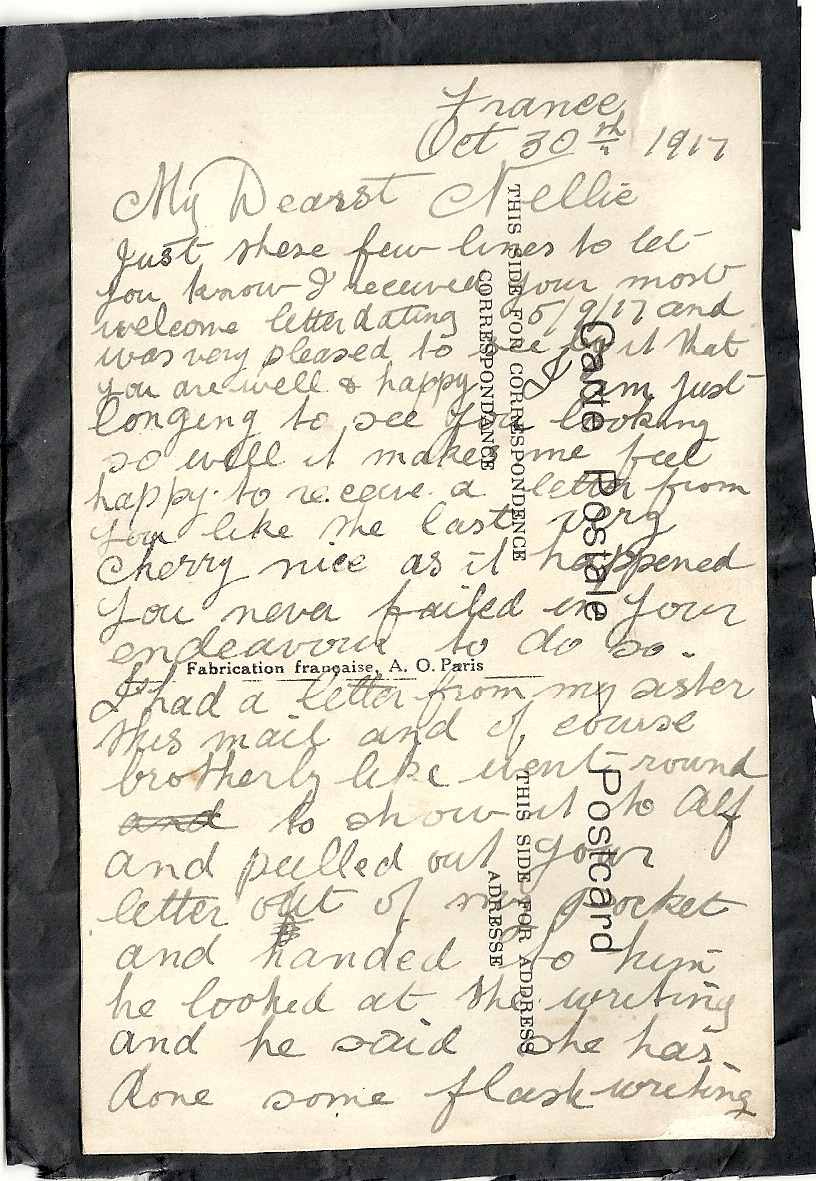 France
Oct 30th 1917
My Dearst Nellie
Just these few lines to let
you know I received your most
welcome letter dating 5/9/17 and
was very pleased to see by it that
you are well & happy I am just
longing to see you looking
so well it makes me feel
happy to receive a letter from
you like the last very
cherry nice as it happened
you never failed in your
endeavour to do so.
I had a letter from my sister
this mail and of course
brotherly like went round
and to show it to Alf
and pulled out your
letter out of my pocket
and handed to him
he looked at the writing
and he said she has
done some flash writing
Carte Postale — Postcard
THIS SIDE FOR CORRESPONDENCE
CORRESPONDANCE
THIS SIDE FOR ADDRESS
ADRESSE
Fabrication française, A. O. Paris